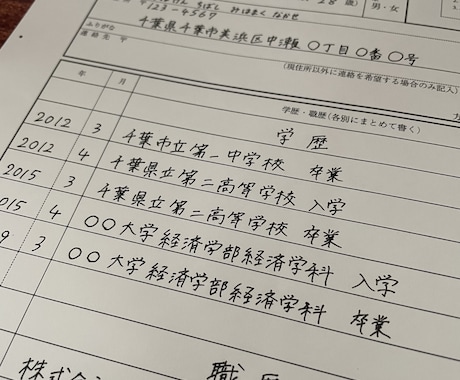 28 歳)
男・女
ちばし みはまく なかせ
123-4567
千葉県千葉市美浜区中瀬 〇丁目〇番〇号
ふりがな
連絡先 〒
(現住所以外に連絡を希望する場合のみ記入)
年 月 学歴・職歴(各別にまとめて書く)
学歴
2012 3 千葉市立第一中学校 卒業
2012 4 千葉県立第二高等学校 入学
2015 3 千葉県立第二高等学校 卒業
015 4 〇〇大学経済学部経済学科 入学
9 3 〇〇大学経済学部経済学科 卒業
職歴
株式会